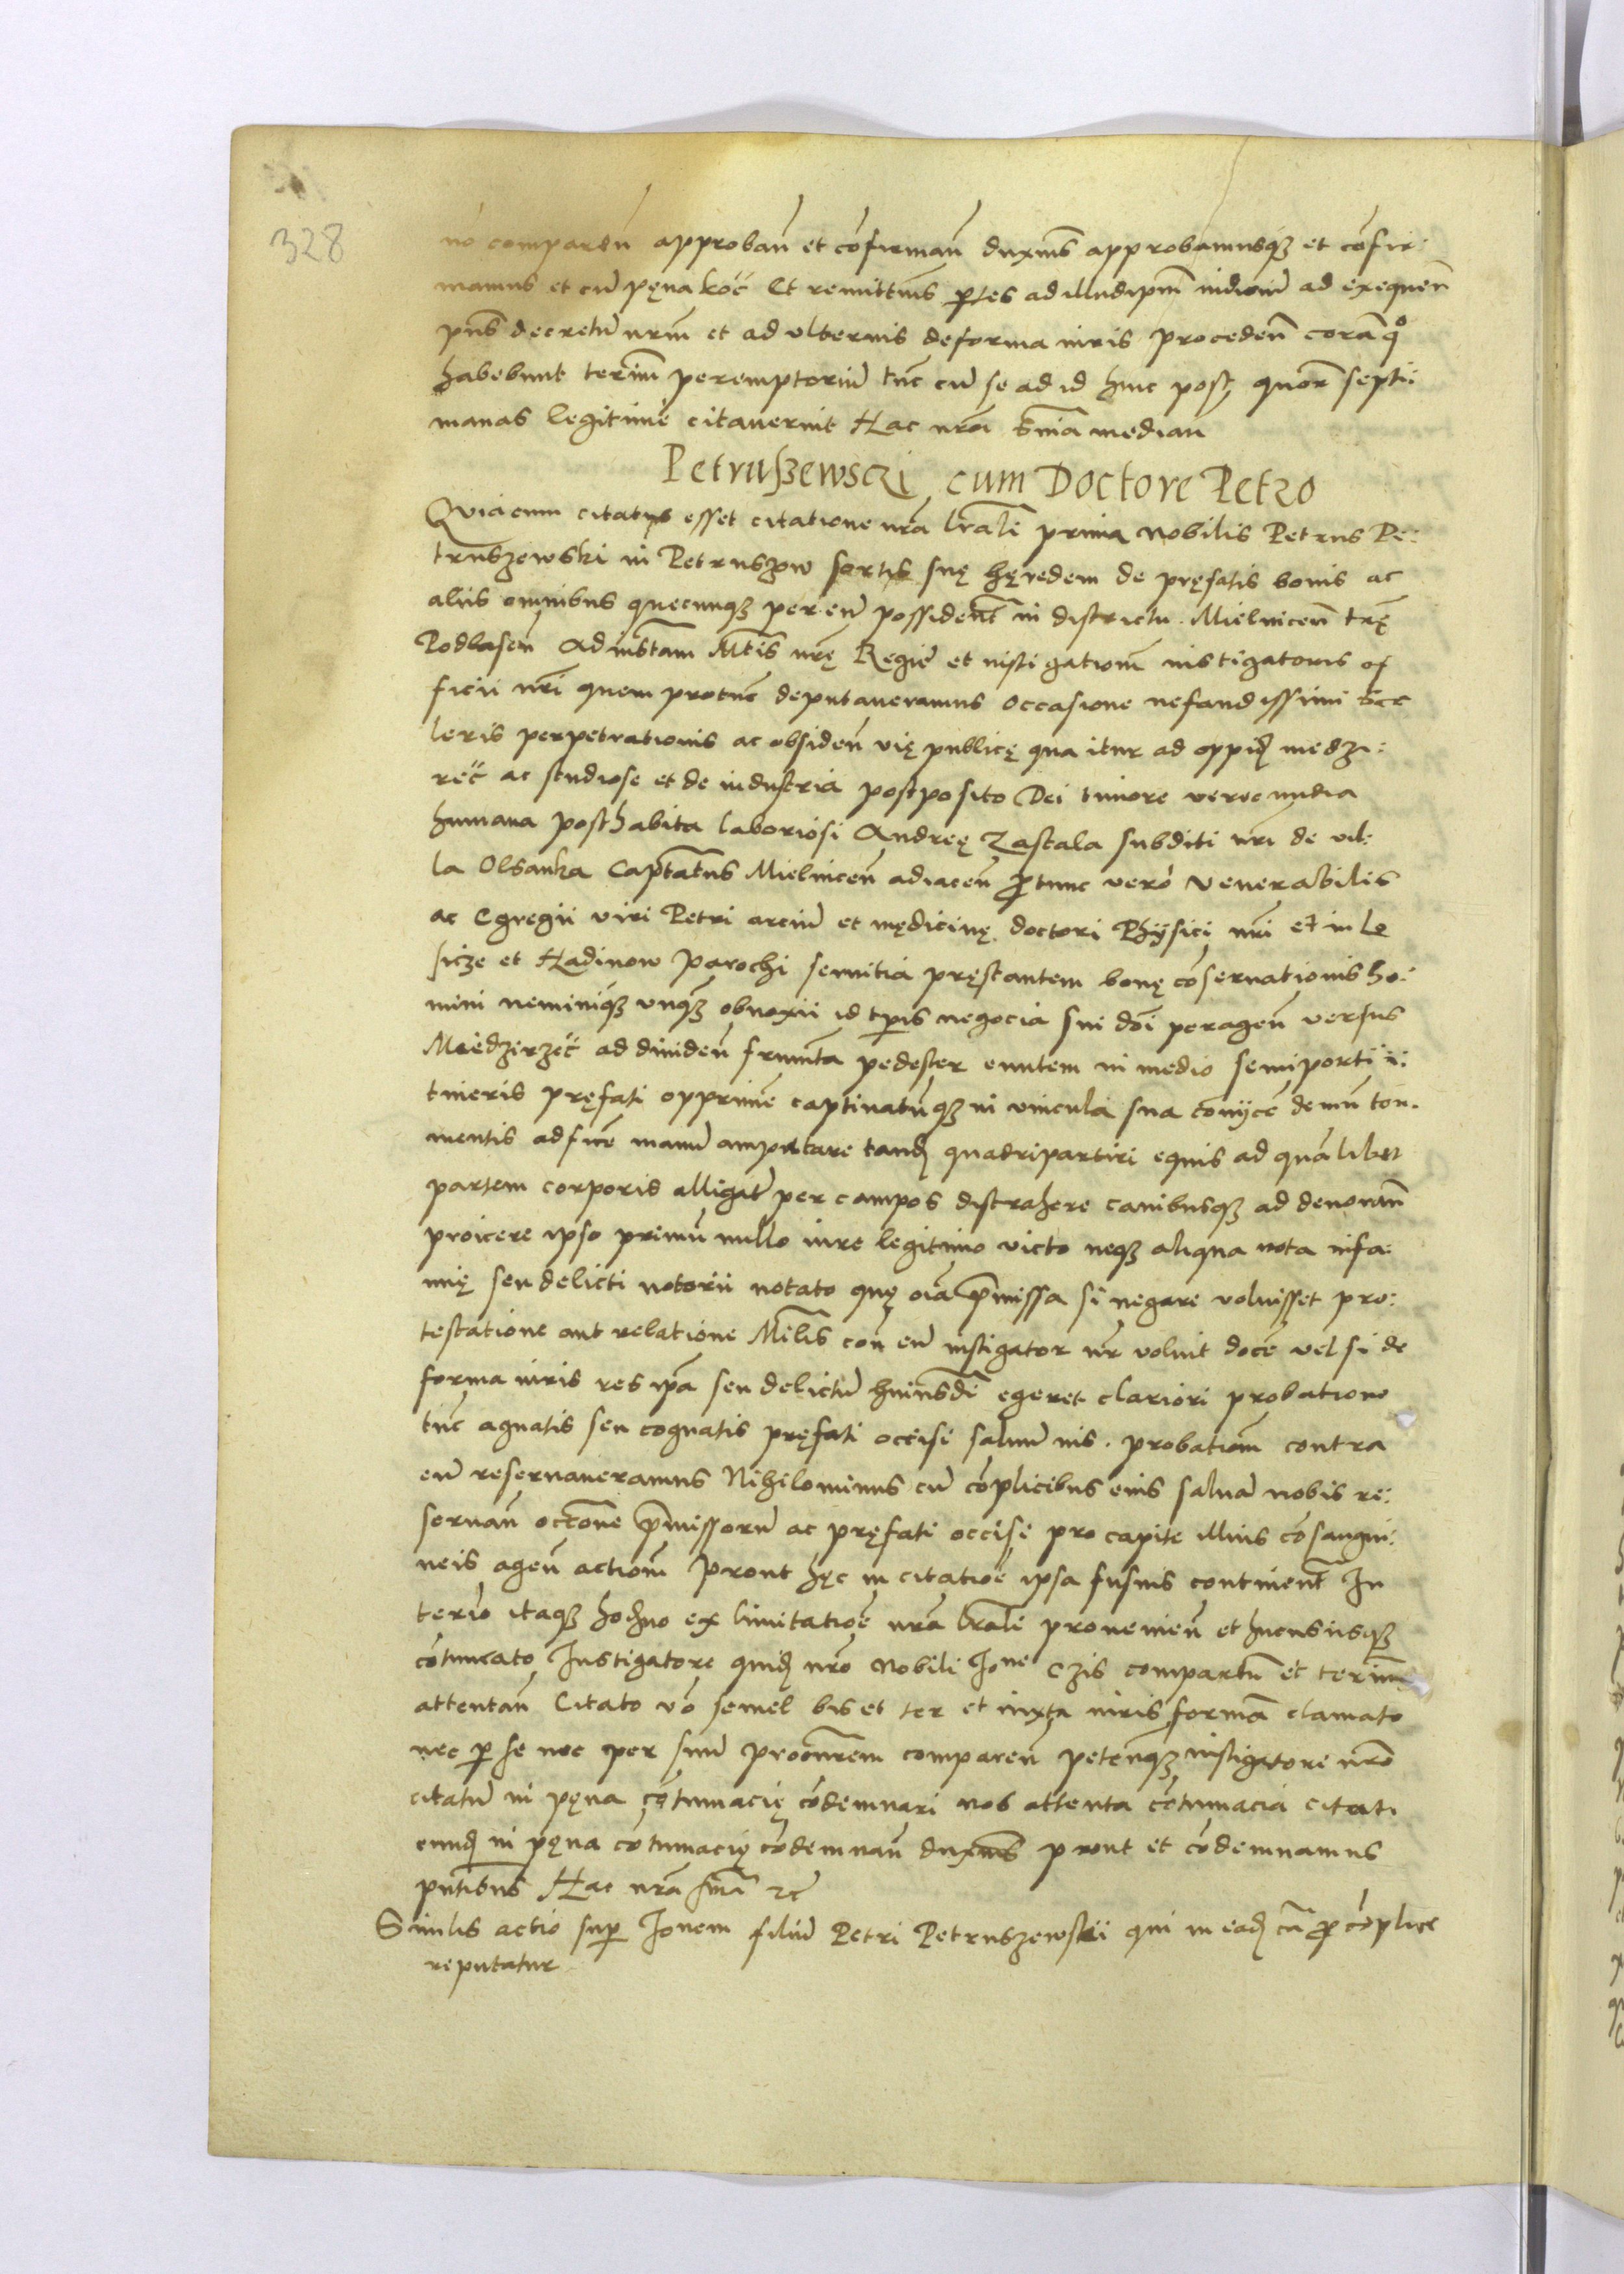 328
nō comparēn approbān et cōfirmān duximus approbamusq3 et cōfir:
mamus et cū pęna koć Et remittimus ptes ad illud ipm iudiciū ad exequen
pns decretū nrm et ad vlterius de forma iuris proceden corā quo
habebunt terminū peremptoriū tūc cū se ad id hinc post quor septi:
manas legitime citauerint Hac nrā sniā median
Petrußewsczi cum Doctore Petro
Quia cum citatus esset citatione nrā lrali prima Nobilis Petrus Pe:
truszewski in Petruszow sortis suę hęredem de pręfatis bonis ac
aliis omnibus quecunq3 per eū possident in districtu Mielnicen trę
Podlasen Ad instam Mtis nrę Regie et instigationē instigatoris of
ficii nri quem protūc deputaueramus occasione nefandissimi sce
leris perpetrationis ac obsiden vię publicę qua itur ad oppid medzi:
reć ac studiose et de industria postposito Dei timore verecundia
humana posthabita laboriosi Andreę Zastala subditi nri de vil:
la Olsanka Captatus Mielnicen adiacen protunc vero Venerabilis
ac Egregii viri Petri arciū et mędicinę doctori Physici nri et in Lo
sicze et Hadinow Parochi seruitia pręstantem bonę cōseruationis ho:
mini neminiq3 vnq3 obnoxii id tpis negocia sui dni peragen versus
Miedzerzeć ad diuiden frumta pedester euntem in medio semiporti i:
tineris pręfati opprimē captiuatūq3 in vincula sua conijcē demū tor.
mentis adficē manū amputare tand quadripartiri equis ad quālibet
partem corporis alligatē per campos distrahere canibusq3 ad deuoran
proicere ipso primū nullo iure legitimo victo neq3 aliqua nota infa:
mię seu delicti notorii notato quę oīa pmissa si negare voluisset pro:
testatione aut relatione Mlis con eū instigator nr voluit docē vel si de
forma iuris res ipa seu delictū huiusdi egeret clariori probatione
tūc agnatis seu cognatis pręfati occisi saluū ius probatiom contra
eū reseruaueramus Nihilominus cū cōplicibus eius saluā nobis re:
seruan occone pmissorū ac pręfati occisi pro capite illius cōsangui:
neis agen actiom Prout hęc in citatioē ipsa fusius continent In
terīo itaq3 hodno ex limitatioē nrā lrali prouenien et hucusiisq3
cōtinuato Instigatore quid nro Nobili Jone Czis compartū et terim
attentan Citato vo semel bis et ter et iuxta iuris formā clamato
nec p se nec per suū procurem comparen petenq3 instigatore nro
citatū in pęna cōtumacię cōdemnari nos attenta cōtumacia citati
eund in pęna cōtumacię cōdemnan duximus prout et cōdemnamus
pntibus Hac nra sniā etc
Similis actio sup Jonem filiū Petri Petruszewskii qui in ead cā pro cōplice
reputatur